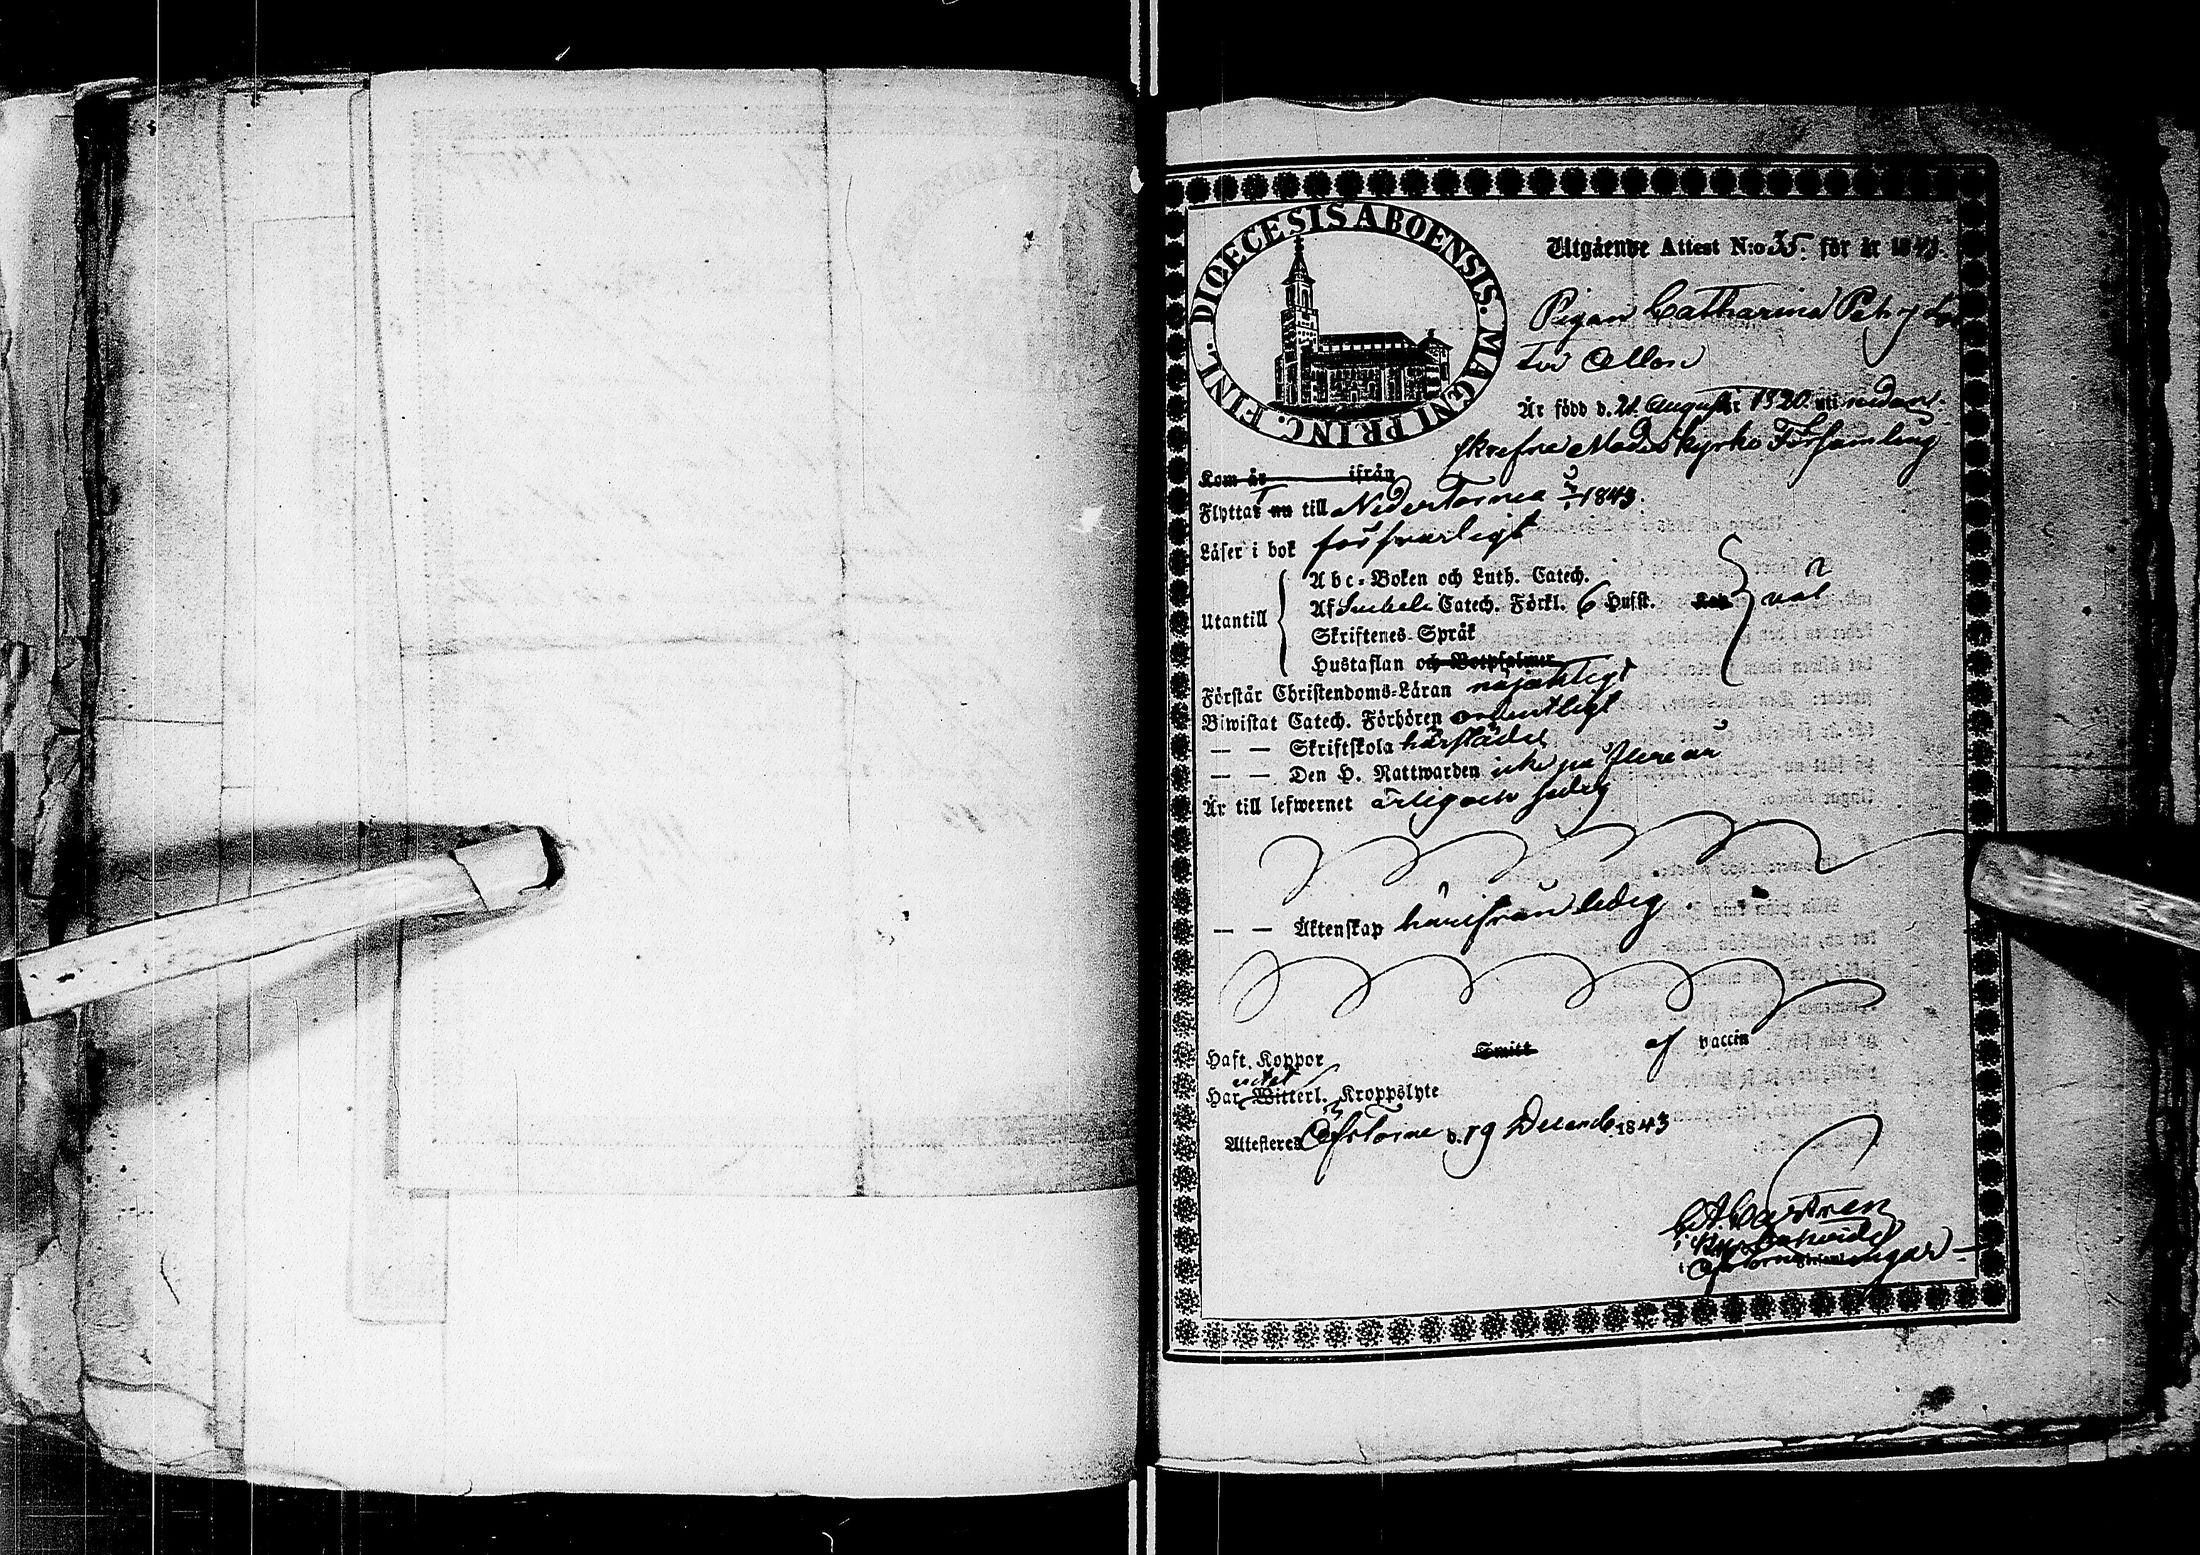 DIOECESIS ABOENSIS. MAGNI PRINC. FINL.
Utgående Attest N:o 35. för år 1843.
Pigan Catharina
Är född d. 21 Augusti 1820 uti nedan-
skrefne Moderkyrko Församling
Kom år ifrån
Flyttar nu till NederTornea 1843.
Läser i bok försvarligt
Utantill
Abc-Boken och Luth. Catech.
Af Svebeli Catech. Förkl. 6 Hufst. väl
Skriftenes Språk
Hustaflan och Botpsalmer
Förstår Christendoms-Läran nöjaktligt
Biwistat Catech. Förhören ordentligt
— — Skriftskola härstädes
— — Den H. Nattwarden icke på flere år
Är till lefwernet ärlig och sedig
— — Äktenskap härifrån ledig.
Haft Koppor Smitt af vaccin
Har Witterl. Kroppslyte
Attesterer ÖfrTorne d. 19 Decemb. 1843
Castren